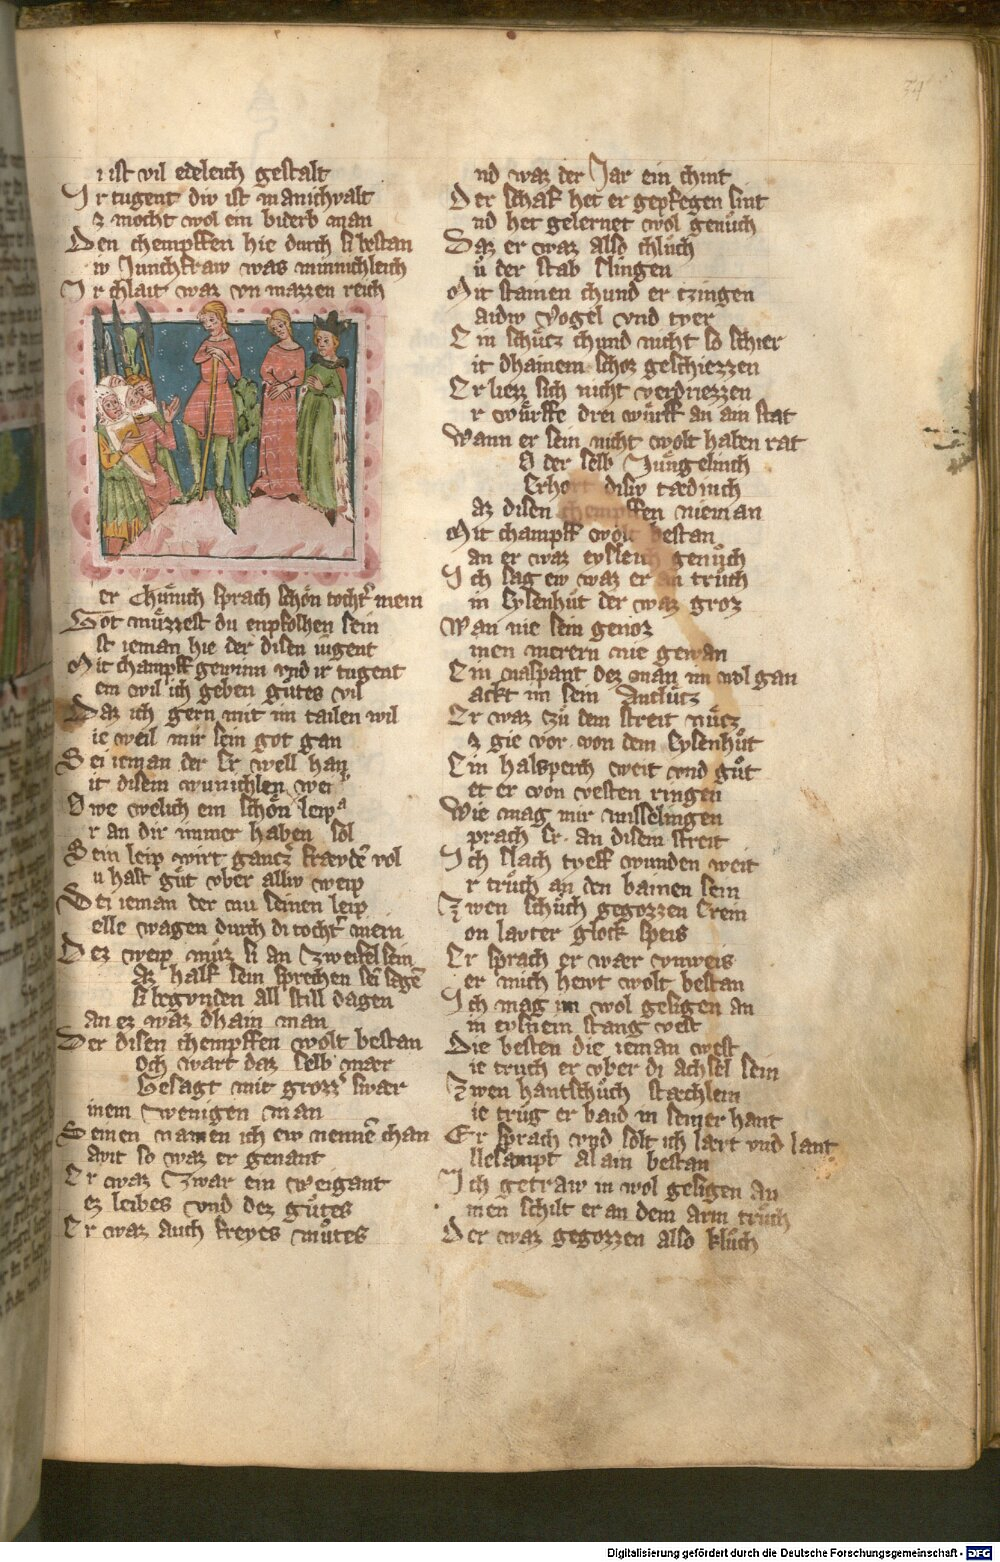 i ist vil edeleich gestalt
Ir tugent div ist manichvalt
z mocht wol ein biderb man
Den chempffen hie durch si bestan
iv Junchfraw was minnichleich
Ir chlait waz vn mazzen reich
er Chuͤnich sprach schoͤn tocht̄ mein
Got muͤzzest du enpfolhen sein
st ieman hie der disen iugent
Mit champff gewinn vnd ir tugent
em wil ich geben guͤtes vil
Daz ich gern mit im tailen wil
ie weil mir sein got gan
Sei ieman der Er well han
it disem wunichlen wei
O we welich ein schoͤn leip
r an dir immer haben sol
Dein leip wirt gancz fraͤvdē vol
u hast guͤt vber alliv weip
Sei ieman der nu seinen leip
elle wagen durch di tocht̄ mein
Dez weip muͤz si an Zweifel sein
Az half sein sprechen sein sagē
si begvnden all still dagen
an ez waz dhain man
Der disen chempffen wolt bestan
och wart daz selb maer
Gesagt mit grozz̄ swaer
inem wenigen man
Seinen namen ich ew nennē chan
avit so waz er genant
Er waz Zwar ein weigant
ez leibes vnd dez guͤtes
Er waz auch freyes muͤtes
nd waz der Jar ein chint
Der schaf het er gepflegen sint
nd het gelernet wol genuͤch
Daz er waz also chluͤch
uͤ der stab slingen
Mit stainen chund er tzingen
aidiv Vogel vnd tyer
Ein schuͤcz chund nicht so schier
it dhainem schoz geschiezzen
Er liez sich nicht verdriezzen
r wuͤrffe drei wuͤrff an ain stat
Wann er sein nicht wolt haben rat
O der selb Juͤngelinch
Erhort disiv taedinch
az disen chempffen nieman
Mit champff wolt bestan
an er waz eysleich genuͤch
Ich sag ew waz er an truͤch
in Eysenhuͤt der waz groz
Wan nie sein genoz
inen merern nie gewan
Ein naspant dez man im wol gan
ackt im sein Antlutz
Er waz zuͤ dem streit nuͤcz
z gie vor von dem Eysenhuͤt
Ein halsperch weit vnd guͤt
et er von vesten ringen
Wie mag mir misselingen
prach Er an disem streit
Ich slach tyeff wunden weit
r truͤch an den bainen sein
Zwen schuͤch gegozzen Erein
on lavter glock speis
Er sprach er waer vnweis
er mich hewt wolt bestan
Ich mag im wol gesigen an
in eysnem stang vest
Die besten die ieman west
ie truch er vber di achsel sein
Zwen hantschuͤch staechlein
ie truͤg er baid in seiner hant
Er sprach vnd solt ich laert vnd lant
llesampt al ain bestan
Ich getraw in wol gesigen an
inen schilt er an dem arm truͤch
Der waz gegozzen also kluͤch
Digitalisierung gefördert durch die Deutsche Forschungsgemeinschaft - DFG